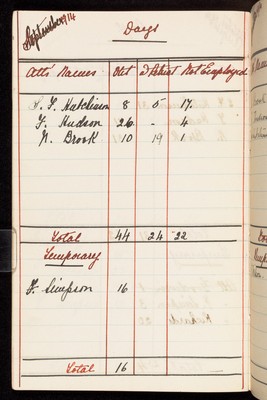 September 1914
Days
Att's Names Out District Not Employed
Hutchison 8 5 17
F. Hudson 26 - 4
Brook 10 19 1
Total 44 24 22
Temporary
F. Simpson 16
Total 16